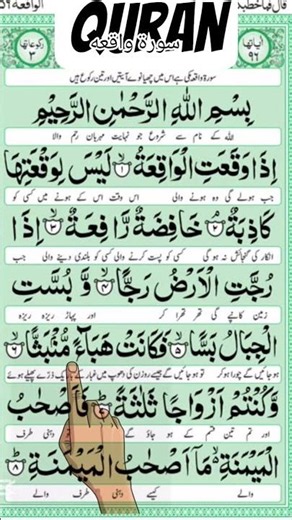 قال فما خطبكم
الواقعة
QURAN
سورة واقعه
رکوعاتها ٣
اٰیاتها ٩٦
سورۃ واقعہ مکی ہے اس میں چھیانوے آیتیں اور تین رکوع ہیں
بِسْمِ اللّٰهِ الرَّحْمٰنِ الرَّحِيْمِ
اللہ کے نام سے شروع جو نہایت مہربان رحم والا
اِذَا وَقَعَتِ الْوَاقِعَةُ ۙ﴿۱﴾ لَيْسَ لِوَقْعَتِهَا
جب ہولے گی وہ ہونے والی اس وقت اس کے ہونے میں کسی کو
كَاذِبَةٌ ۘ﴿۲﴾ خَافِضَةٌ رَّافِعَةٌ ۙ﴿۳﴾ اِذَا
انکار کی گنجائش نہ ہوگی کسی کو پست کرنے والی کسی کو بلندی دینے والی جب
رُجَّتِ الْاَرْضُ رَجًّا ۙ﴿۴﴾ وَّ بُسَّتِ
زمین کانپے گی تھر تھرا کر اور پہاڑ ریزہ ریزہ
الْجِبَالُ بَسًّا ۙ﴿۵﴾ فَكَانَتْ هَبَآءً مُّنْۢبَثًّا ۙ﴿۶﴾
ہوجائیں گے چورا ہوکر تو ہوجائیں گے جیسے روزن کی دھوپ میں غبار کے باریک ذرے پھیلے ہوئے
وَّ كُنْتُمْ اَزْوَاجًا ثَلٰثَةً ؕ﴿۷﴾ فَاَصْحٰبُ
اور تم تین قسم کے ہو جاؤ گے تو دہنی طرف
الْمَيْمَنَةِ ۙ۬ مَاۤ اَصْحٰبُ الْمَيْمَنَةِ ؕ﴿۸﴾
والے کیسے دہنی طرف والے